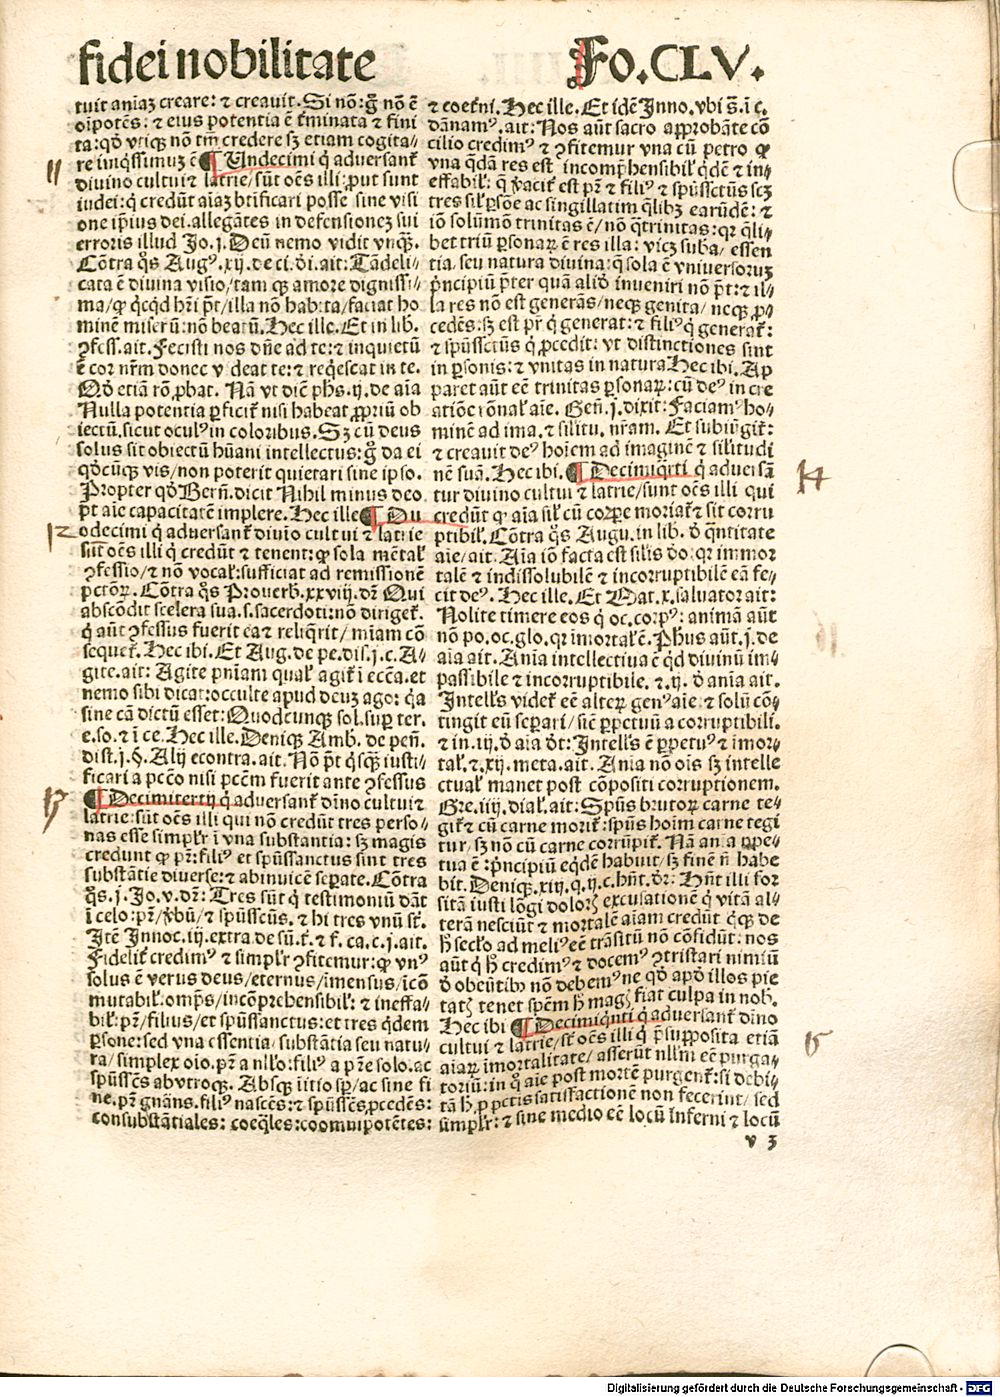 fidei nobilitate
Fo. CLV.
tuit aniaȝ creare: ⁊ creauit. Si nō: gͦ nō ē
oīpotēs: ⁊ eius potentia ē t̄minata ⁊ fini
ta: qd̓ vtiqꝫ nō tm̄ credere sȝ etiam cogita-
re iniqͥssimuȝ ē ¶ Undecimi qͥ aduersant̄
11
diuino cultui ⁊ latrie/ sūt oēs illi: ꝓut sunt
iudei: qͥ credūt aīaȝ btīficari posse sine visi
one ip̄ius dei. allegātes in defensioneȝ sui
erroris illud Jo. j. Deū nemo vidit vnqꝫ.
Cōtra qͦs Augꝰ. xij. de ci. dī. ait: Tādeli-
cata ē diuina visio/ tam qꝫ amore dignissi-
ma/ ꝙ qͥcqd hr̄i pt̄/ illa nō habita/ faciat ho
minē miserū: nō beatū. Hec ille. Et in lib.
ꝯfess. ait. Fecisti nos dn̄e ad te: ⁊ inquietū
ē cor nr̄m donec v deat te: ⁊ reqͥescat in te.
Qd̓ etiā rō ꝓbat. Nā vt dic̄ phs. ij. de aīa
Nulla potentia ꝑficit̄ nisi habeat ꝓpriū ob
iectū. sicut oculꝰ in coloribus. Sȝ cū deus
solus sit obiectū hūani intellectus: gͦ da ei
qd̓cūqꝫ vis/ non poterit quietari sine ipso.
Propter qd̓ Bern̄. dicit Nihil minus deo
pt̄ aīe capacitatē implere. Hec ille ¶ Du
12
odecimi qͥ aduersant̄ diuīo cultui ⁊ latrie
sūt oēs illi qͥ credūt ⁊ tenent: ꝙ sola mētal̄
ꝯfessio/ ⁊ nō vocal̄: sufficiat ad remissionē
pctōꝝ. Cōtra qͦs Prouerb. xxviij. dr̄ Qui
abscōdit scelera sua. s. sacerdoti: nō diriget̄.
qͥ aūt ꝯfessus fuerit ea ⁊ reliqͥrit/ mīam cō
sequet̄. Hec ibi. Et Aug. de pe. dis. j. c. A-
gite. ait: Agite pn̄iam qual̄ agit̄ ī ecc̄a. et
nemo sibi dicat: occulte apud deuȝ ago: qͥa
sine cā dictū esset: Quodcunqꝫ sol. suꝑ ter.
e. so. ⁊ ī ce. Hec ille. Deniqꝫ Amb. de pen̄.
dist. j. §. Alij econtra. ait. Nō pt̄ qͥsqꝫ iusti-
ficari a pcc̄o nisi pcc̄m fuerit ante ꝯfessus
¶ Decimitertij qͥ aduersant̄ dīno cultui ⁊
13
latrie: sūt oēs illi qui nō credūt tres perso-
nas esse simplr̄ ī vna substantia: sȝ magis
credunt ꝙ pr̄: filiꝰ et spūssanctus sint tres
substātie diuerse: ⁊ abinuicē seꝑate. Cōtra
qͦs. j. Jo. v. dr̄: Tres sūt qͥ testimoniū dāt
ī celo: pr̄/ v̄bū/ ⁊ spūssctūs. ⁊ hi tres vnū st̄.
Itē Innoc. iij. extra. de sū. t̄. ⁊ f. ca. c. j. ait.
Fidelit̄ credimꝰ ⁊ simplr̄ ꝯfitemur: ꝙ vnꝰ
solus ē verus deus/ eternus/ imensus/ icō
mutabil̄. omp̄s/ incōprehensibil̄: ⁊ ineffa-
bil̄: pr̄/ filius/ et spūssanctus: et tres qͥdem
ꝑsone: sed vna essentia/ substātia seu natu-
ra/ simplex oīo. pr̄ a nllo: filiꝰ a pr̄e solo. ac
spūssc̄s abvtroqꝫ. Absqꝫ īitio sꝑ/ ac sine fi
ne. pr̄ gn̄ans. filiꝰ nascēs: ⁊ spūssc̄s ꝓcedēs:
consubstātiales: coeqͣles: coomnipotētes:
⁊ coet̄ni. Hec ille. Et idē Inno. vbi s̄. ī c̄.
dānamꝰ. ait: Nos aūt sacro approbāte cō
cilio credimꝰ ⁊ ꝯfitemur vna cū petro ꝙ
vna qͣdā res est incomp̄hensibil̄ qͥdē ⁊ in-
effabil̄: q̄ v̄acit̄ est pr̄ ⁊ filiꝰ ⁊ spūssctūs scȝ
tres sil̄ ꝑsōe ac singillatim qͣlibȝ earūdē: ⁊
iō solūmō trinitas ē/ nō qͣtrinitas: qr qͣli-
bet triū ꝑsonaꝝ ē res illa: vicȝ suba/ essen
tia/ seu natura diuina: q̄ sola ē vniuersoruȝ
pͥncipiū pt̄er quā aliō inueniri nō pt̄: ⁊ il-
la res nō est generās/ neqꝫ genita/ necqꝫ ꝓ-
cedēs: sȝ est pr̄ qͥ generat: ⁊ filiꝰ qͥ generat̄:
⁊ spūssctūs qͥ ꝓcedit: vt distinctiones sint
in ꝑsonis: ⁊ vnitas in natura Hec ibi. Ap
paret aūt eē trinitas ꝑsonaꝝ: cū deꝰ in cre
atiōe rōnal̄ aīe. Gen̄. j. dixit: Faciamꝰ ho-
minē ad ima. ⁊ silitu. nr̄am. Et subiūgit̄:
⁊ creauit deꝰ hoīem ad imaginē ⁊ silitudi
nē suā. Hec ibi. ¶ Decimiqͣrti qͥ aduersā
14
tur diuino cultui ⁊ latrie/ sunt oēs illi qui
credūt ꝙ aīa sil̄ cū corꝑe moriat̄ ⁊ sit corru
ptibil̄. Cōtra qͦs Augu. in lib. d̓ qͣntitate
aīe/ ait. Aīa iō facta est silis d̓o: qr immor
talē ⁊ indissolubilē ⁊ incorruptibilē eā fe-
cit deꝰ. Hec ille. Et Mat. x. saluator ait:
Nolite timere eos qͥ oc. corpꝰ: animā aūt
nō po. oc. glo. qr imortal̄ē. Phus aūt. j. de
aīa ait. Anīa intellectiua ē qͥd diuinū im-
passibile ⁊ incorruptibile. ⁊. ij. d̓ anīa ait.
Intells videt̄ eē alteꝝ genꝰ aīe: ⁊ solū cō-
tingit eū seꝑari/ sic̄ ꝑpetuū a corruptibili.
⁊ in. iij. d̓ aīa d̓t: Intells ē ꝑpetuꝰ ⁊ imor-
tal̄. ⁊. xij. meta. ait. Anīa nō ois sȝ intelle
ctual̄ manet post cōpositi corruptionem.
Gre. iiij. dial̄. ait: Spūs brutoꝝ carne te-
git̄ ⁊ cū carne morit̄: spūs hoīm carne tegi
tur/ sȝ nō cū carne corrūpit̄. Nā anīa ꝑpe-
tua ē: pͥncipiū eqͥdē habuit/ sȝ finē n̄ habe
bit. Deniqꝫ. xiij. q. ij. c. hn̄t. dr̄: Hn̄t illi for
sitā iusti lōgi doloꝝ excusationē qͥ vitā al-
terā nesciūt ⁊ mortalē aīam credūt qͥqꝫ de
h̄ sec̄lo ad meliꝰ eē trāsitū nō cōfidūt: nos
aūt qͥ h̄ credimꝰ ⁊ docemꝰ ꝯtristari nimiū
d̓ obeūtibȝ nō debemꝰ ne qd̓ apd̓ illos pie
tatꝭ tenet spēm h̄ magꝭ fiat culpa in nob̄.
Hec ibi ¶ Decimiqͥnti qͥ aduersant̄ dīno
15
cultui ⁊ latrie/ st̄ oēs illi qͥ p̄supposita etiā
aīaꝝ imortalitate/ asserūt nllm̄ eē purga-
toriū: in qͦ aīe post mortē purgent̄: si debi-
tā h̄. ꝓ pctīs satisfactionē non fecerint/ sed
simplr̄: ⁊ sine medio eē locū inferni ⁊ locū
v 3
Digitalisierung gefördert durch die Deutsche Forschungsgemeinschaft - DFG